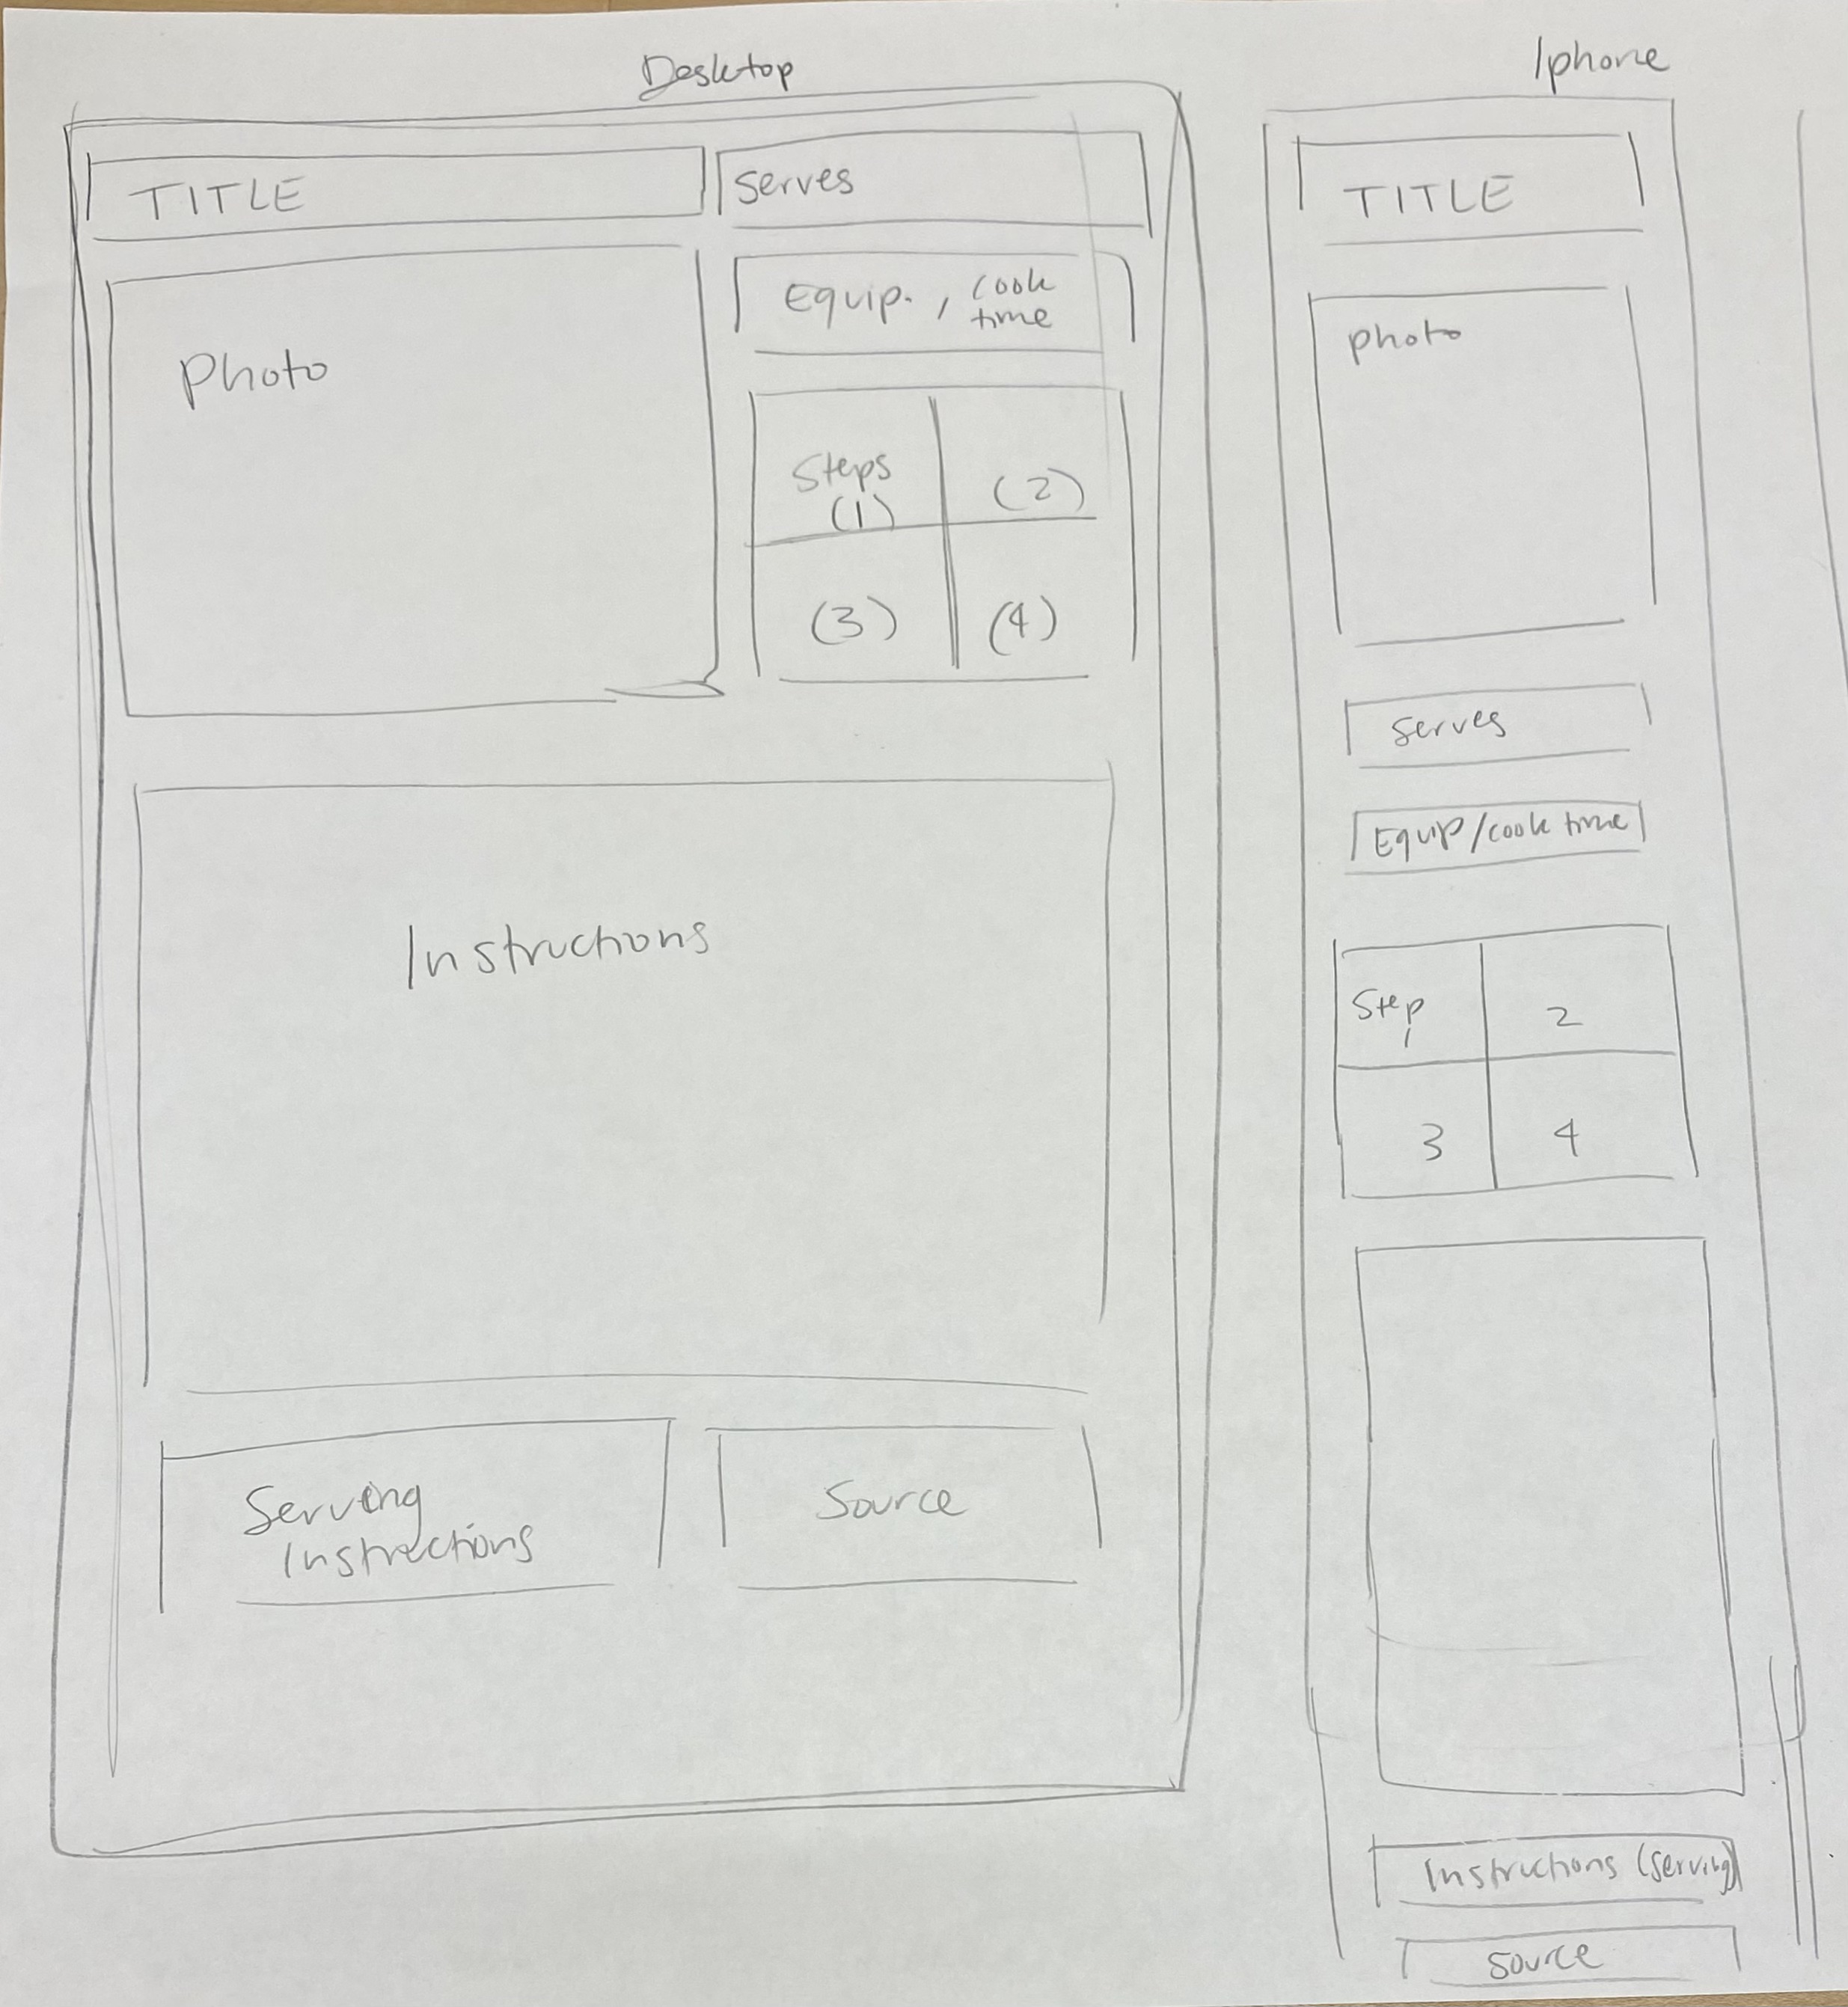 Desktop
TITLE
Serves
Photo
Equip. , cook
time
Steps
(1)
(2)
(3)
(4)
Instructions
Serving
Instructions
Source
Iphone
TITLE
photo
Serves
Equip/cook time
Step
1
2
3
4
Instructions (serving)
Source